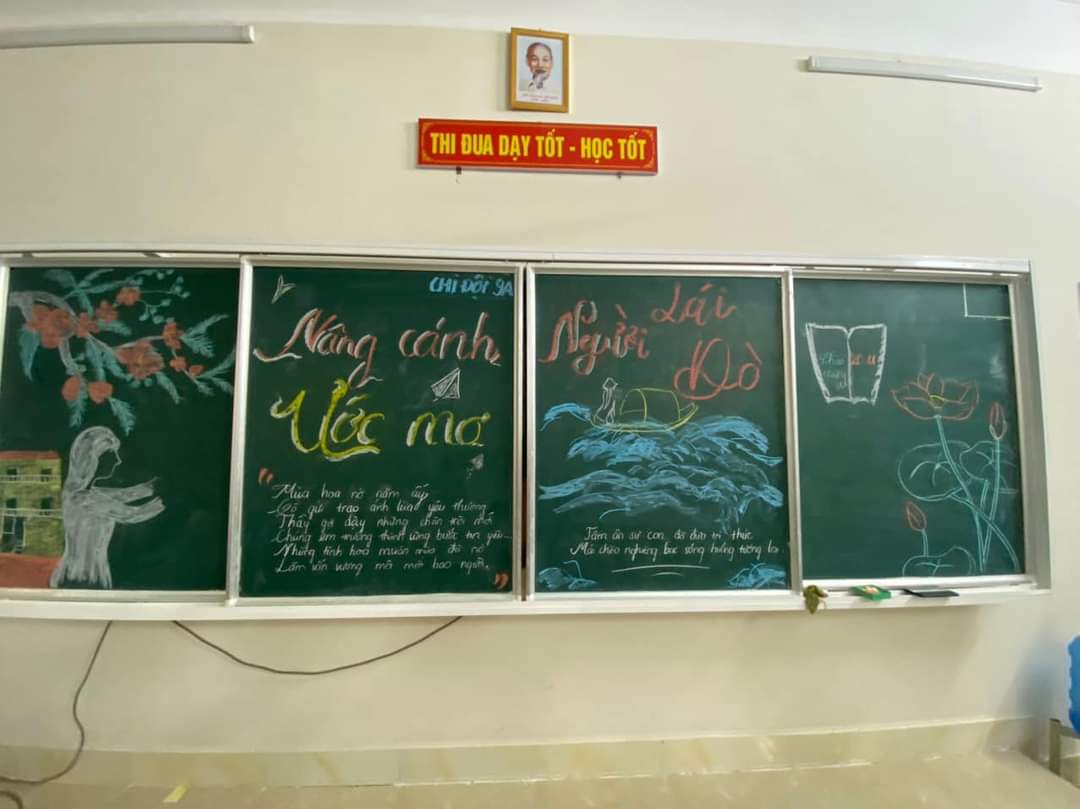 THI ĐUA DẠY TỐT - HỌC TỐT
CHI ĐỘI 9A
Nâng cánh
Ước mơ
Mùa hoa nở năm ấy
Cô gửi trao ánh lửa yêu thương
Thầy gợi dậy những chân trời mới
Chúng em trưởng thành vững bước tin yêu...
Những tinh hoa muôn màu đã nở
Lấm vấn vương mãi mãi bao người.
Người Lái
Đò
Tấm ân sư con đò đưa tri thức
Mái chèo nghiêng bạc sóng hướng tương lai.
20.11